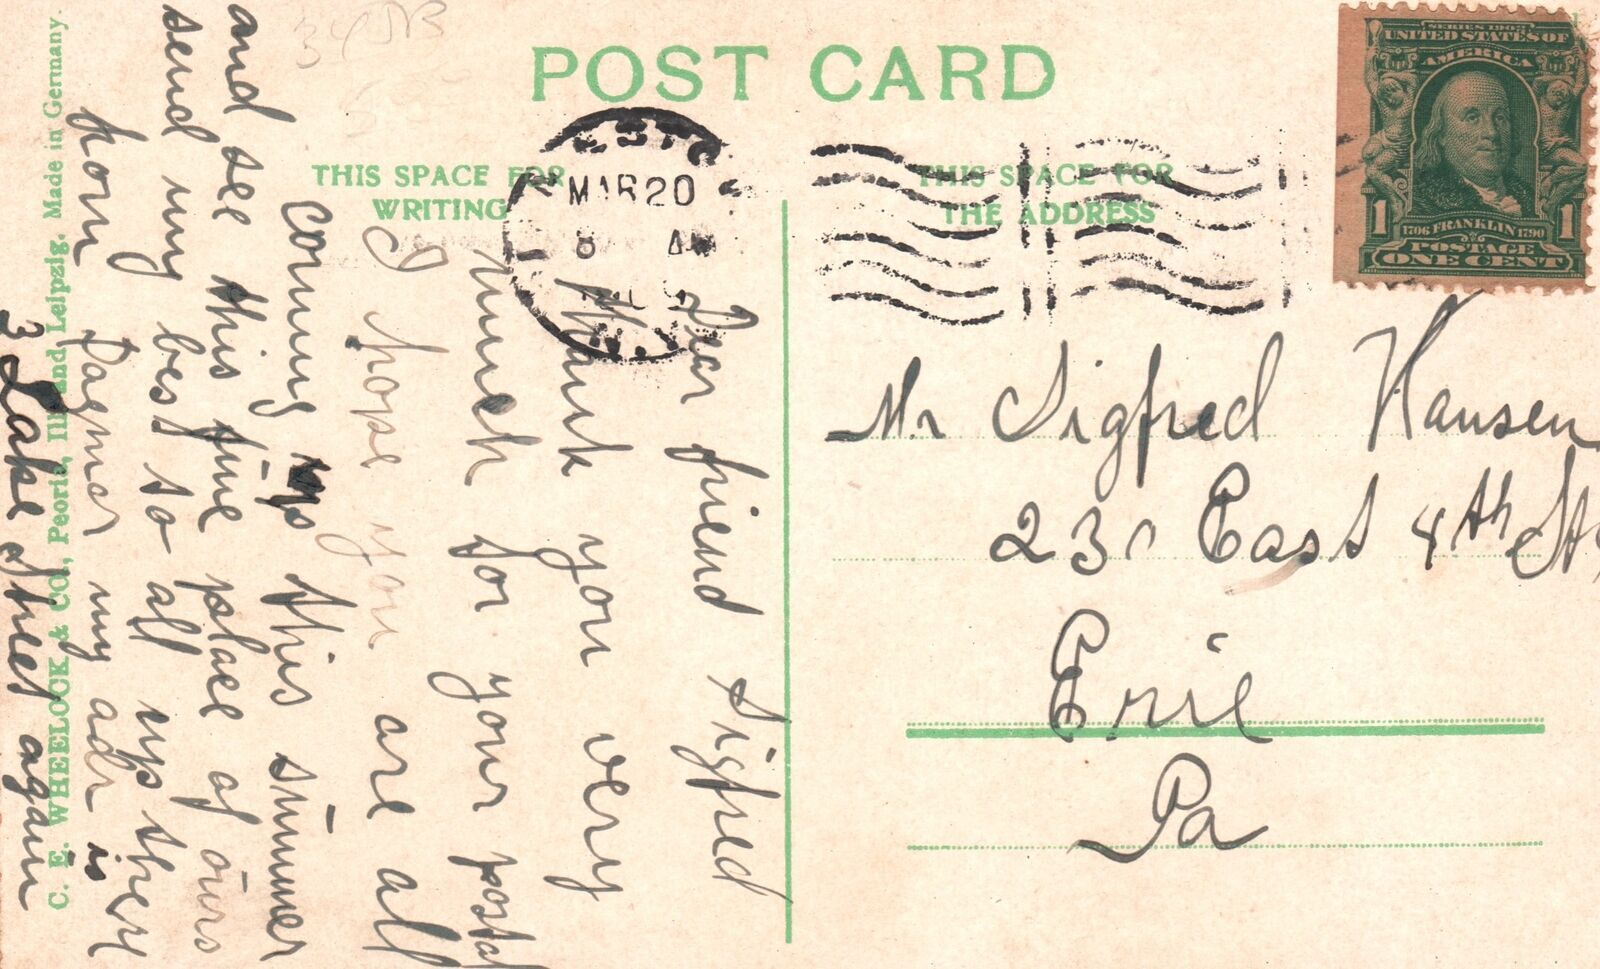 POST CARD
THIS SPACE FOR
WRITING
THIS SPACE FOR
THE ADDRESS
SERIES 1902
UNITED STATES OF
AMERICA
1 1
1706 FRANKLIN 1790
POSTAGE
ONE CENT
MAR 20
8 A
Dear friend Sigfred
thank you very
much for your postal
I hope you are all
coming up this summer
and see this fine place of ours
send my best so all up there
from Dagmar my adr is
3 Lake Street again
Mr Sigfred Hansen
230 East 4th St
Erie
Pa
C. E. WHEELOCK & CO., Peoria, Ill. and Leipzig. Made in Germany.